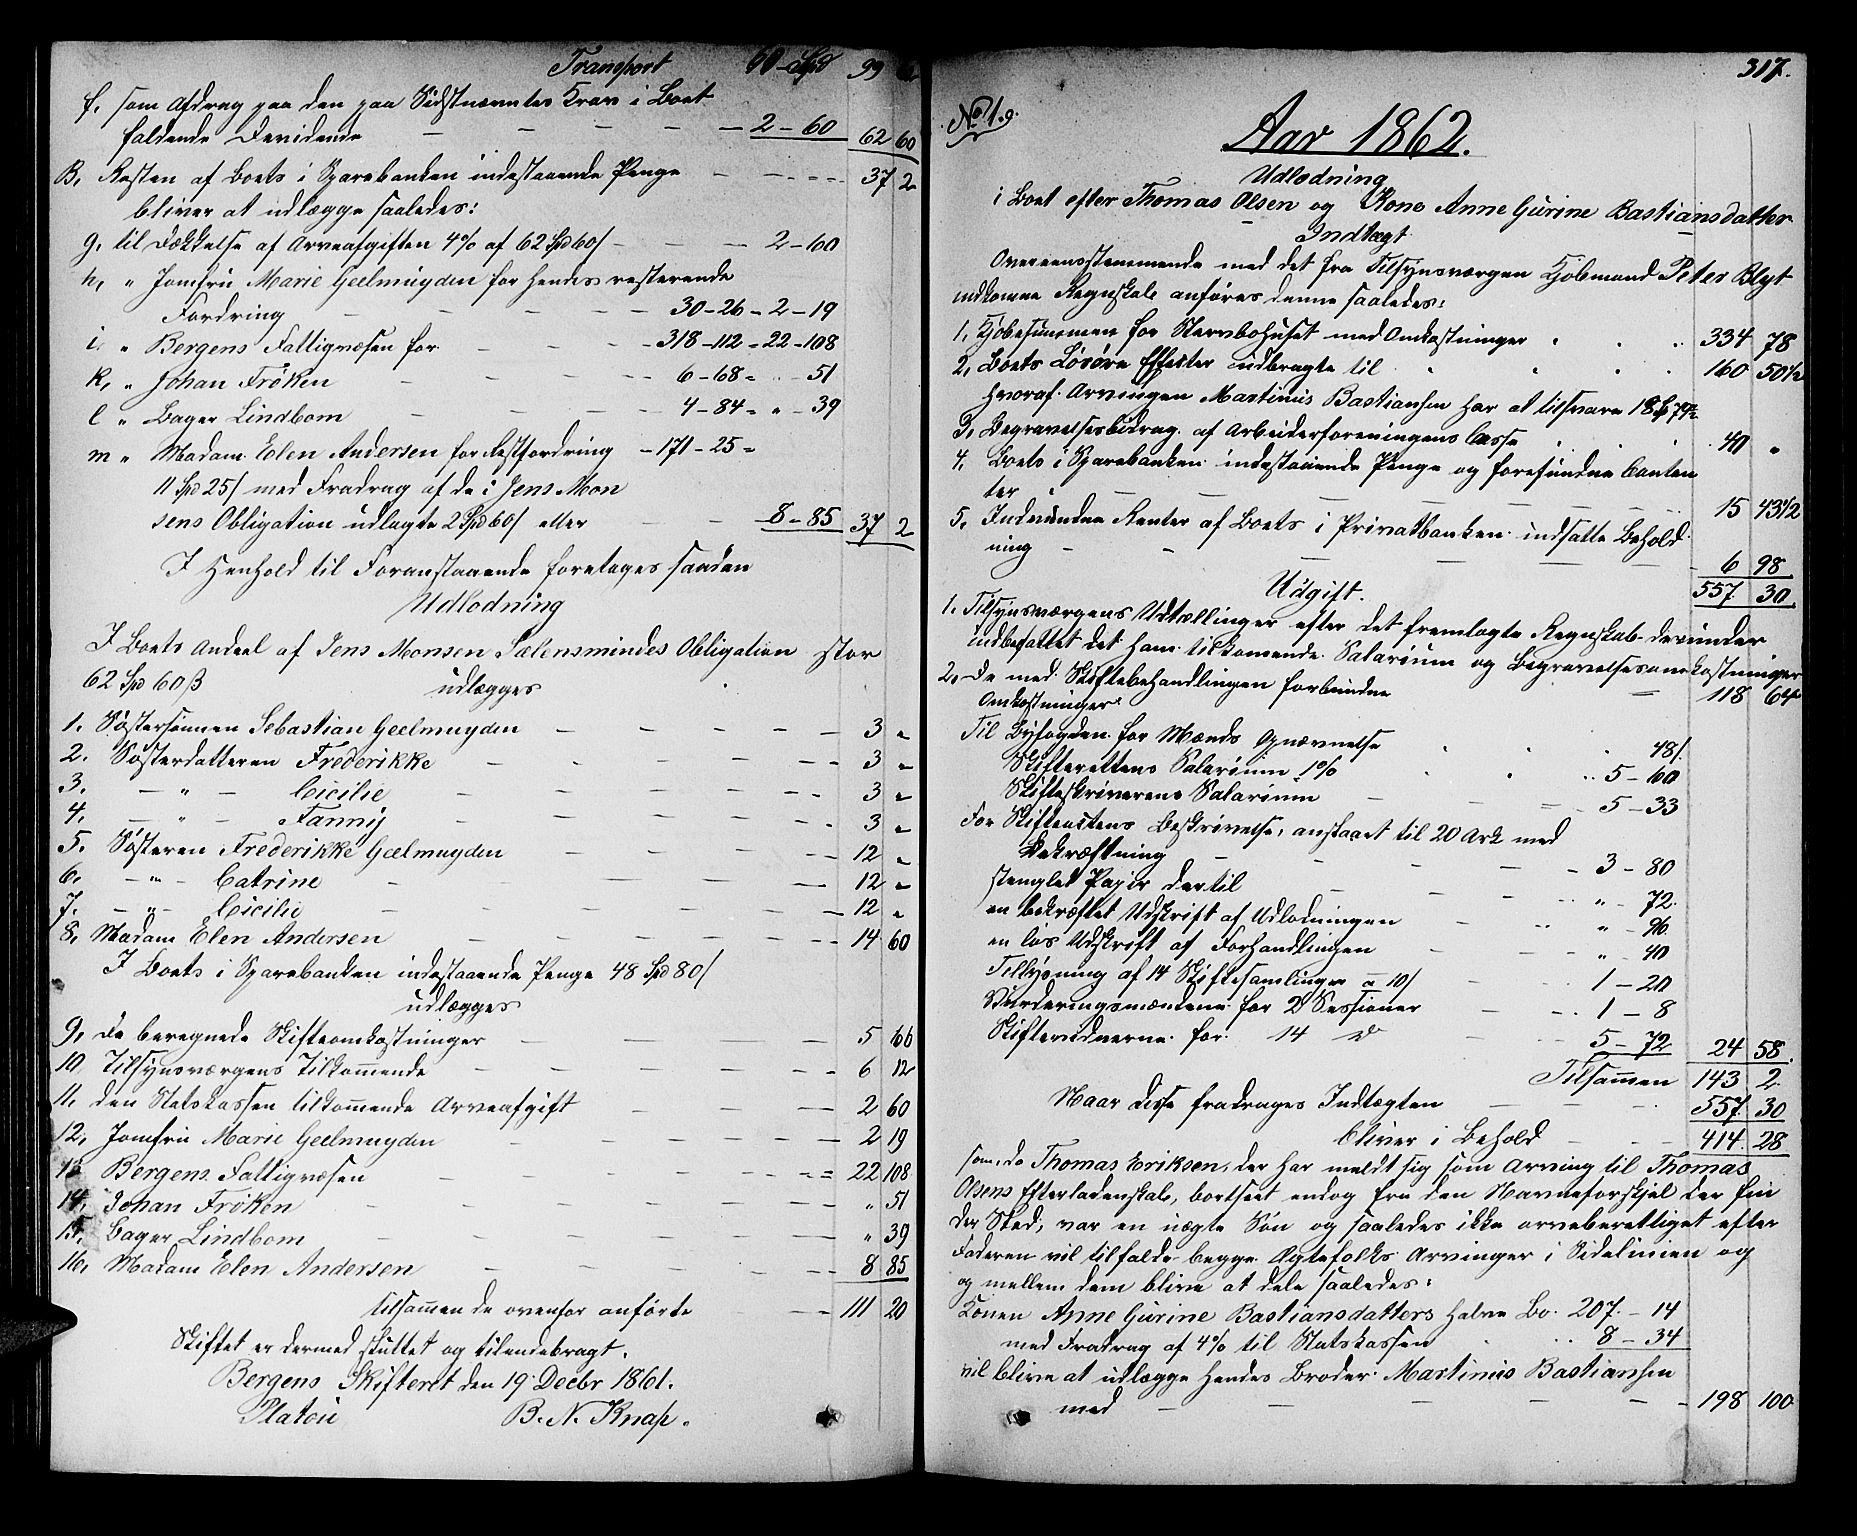 Transport 60 - Spd 99 6
f, som Afdrag paa den paa Sidstnævntes Krav i Boet
faldende Devidende — — — — — 2 - 60 62 60
B, Resten af Boets i Sparebanken indestaaende Penge — — 37 2
bliver at udlægge saaledes:
g, til Dækkelse af Arveafgiften 4% af 62 Spd 60/ — — — 2 - 60
h, " Jomfru Marie Geelmuyden for hendes resterende
Fordring — — — — 30 - 26 - 2 - 19
i, " Bergens Fattigvæsen for — — — 318 - 112 - 22 - 108
k, " Johan Frøken — — — 6 - 68 - " - 51
l " Bager Lindbom — — — 4 - 84 - " - 39
m " Madam Elen Andersen for Restfordring - 171 - 25 -
11 Spd 25/ med Fradrag af de i Jens Mon
sens Obligation udlagte 2 Spd 60/ eller — — 8 - 85 37 2
I Henhold til Foranstaaende foretages saadan
Udlodning
I Boets Andeel af Jens Monsen Sælensmindes Obligation stor
62 Spd 60 ß udlægges
1. Søstersønnen Sebastian Geelmuyden — — — 3 "
2. Søsterdatteren Frederikke — — — 3 "
3. — " — Cicilie — — — 3 "
4, — " — Fanny — — — 3 "
5. Søsteren Frederikke Geelmuyden — — — 12 "
6. — " — Catrine — — — 12 "
7. — " — Cicilie — — — 12 "
8, Madam Elen Andersen — — — 14 60
I Boets i Sparebanken indestaaende Penge 48 Spd 80/
udlægges
9, De beregnede Skifteomkostninger — — — 5 66
10 Tilsynsværgens Tilkommende — — — 6 12
11. den Statskassen tilkommende Arveafgift — — — 2 60
12, Jomfru Marie Geelmuyden — — — 2 19
13 Bergens Fattigvæsen — — — 22 108
14, Johan Frøken — — — " 51
15. Bager Lindbom — — — " 39
16, Madam Elen Andersen — — — 8 85
tilsammen de ovenfor anførte — — 111 20
Skiftet er dermed sluttet og tilendebragt.
Bergens Skifteret den 19 Decbr 1861.
Platou B. N. Knap.
317.
No 1.
Aar 1862.
Udlodning
i Boet efter Thomas Olsen og Kone Anne Gurine Bastiansdatter
Indtægt
Overeensstemmende med det fra Tilsynsværgen Kjøbmand Peter Blyt
indkomne Regnskab anføres denne saaledes:
1, Kjøbesummen for Stervbohuset med Omkostninger 334 78
2, Boets Løsøre Effecter udbragte til 160 50 1/2
hvoraf Arvingen Martinus Bastiansen har at tilsvare
3, Begravelsesbidrag af Arbeiderforeningens Casse 40 "
4, Boets i Sparebanken indestaaende Penge og forefundne Contan
ter — — — 15 43 1/2
5, Indvundne Renter af Boets i Privatbanken indsatte Behold
ning — — — 6 98
557 30
Udgift.
1. Tilsynsværgens Udtællinger efter det fremlagte Regnskab derunder
indbefattet det ham tilkommende Salarium og Begravelsesomkostninger
118 64
2, De med Skiftebehandlingen forbundne
Omkostninger:
Til Byfogden for Mænds Opnævnelse 48/.
Skifterettens Salarium 1% 5 - 60
Skifteskriverens Salarium — — 5 - 33
For Skifteactens Beskrivelse, anslaaet til 20 Ark med
Bekræftning — — — 3 - 80
stemplet Papir dertil — — " - 72.
en bekræftet Udskrift af Udlodningen — " - 96
en løs Udskrift af Forhandlingen — " - 40
Tillysning af 14 Skiftesamlinger a 10/ — 1 - 20
Vurderingsmændene for 2 Sessioner — 1 - 8
Skiftevidnerne for 14 do — 5 - 72 24 58.
Tilsammen 143 2
Naar disse fradrages Indtægten — — 557 30
bliver i Behold — — 414 28
som, da Thomas Eriksen, der har meldt sig som Arving til Thomas
Olsens Efterladenskab, bortseet endog fra den Navneforskjel der fin
der Sted, var en uægte Søn og saaledes ikke arveberettiget efter
Faderen vil tilfalde begge Ægtefolks Arvinger i Sidelinien og
og mellem dem blive at dele saaledes:
Konen Anne Gurine Bastiansdatters halve Bo 207 - 14
med Fradrag af 4% til Statskassen 8 - 34
vil blive at udlægge hendes Broder Martinus Bastiansen
med — — — 198 100